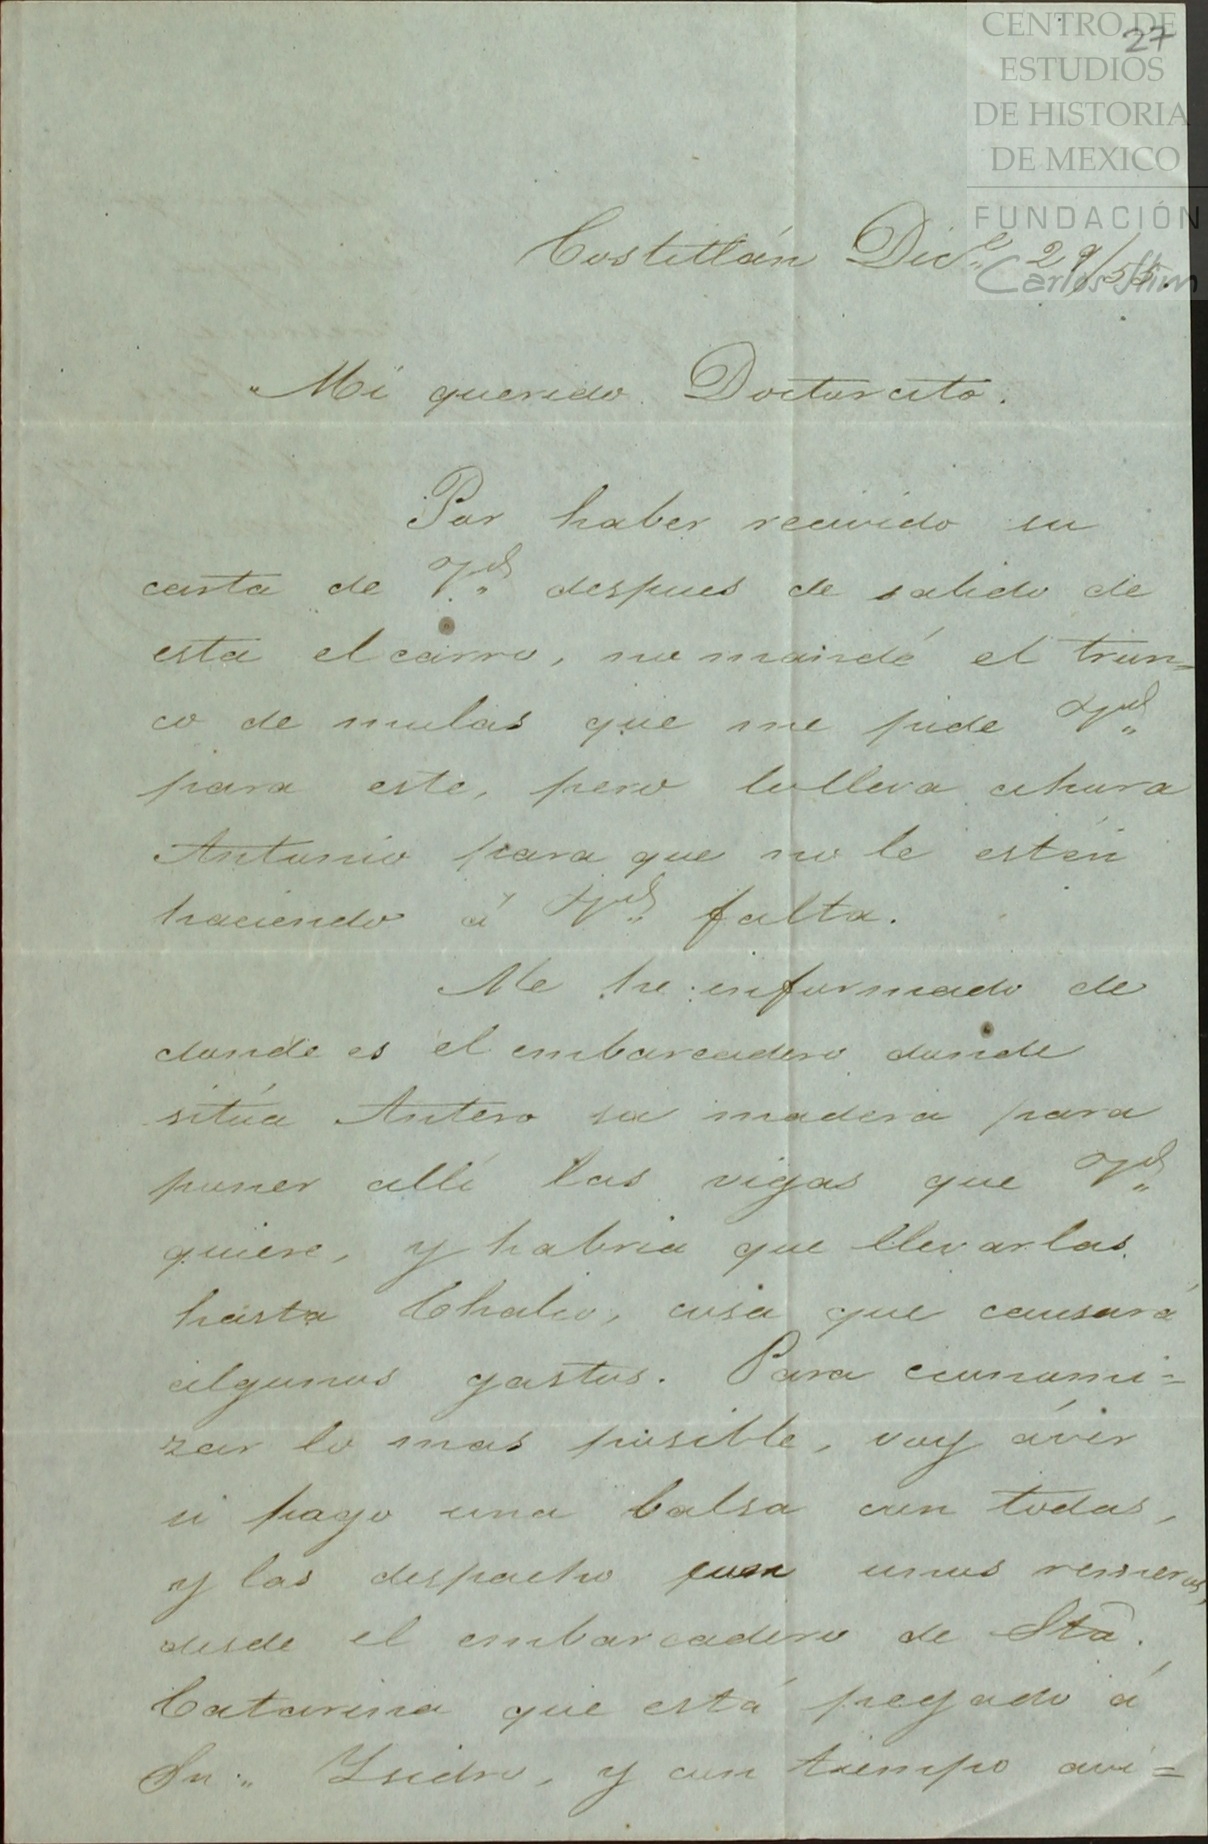 27
CENTRO DE
ESTUDIOS
DE HISTORIA
DE MEXICO
FUNDACIÓN
Carlos Slim
Costitlán Dice. 29/55.
Mi querido Doctorcito.
Por haber recivido su
carta de Vd. despues de salido de
esta el carro, no mandé el tron=
co de mulas que me pide Vd.
para este, pero lo lleva ahora
Antonio para que no le estén
haciendo á Vd. falta.
Me he informado de
donde es el embarcadero donde
sitúa Antero su madera para
poner allí las vigas que Vd.
quiere, y habria que llevarlas
hasta Chalco, cosa que causará
algunos gastos. Para economi=
zar lo mas posible, voy á vér
si hago una balsa con todas,
y las despacho con unos remeros,
desde el embarcadero de Sta.
Catarina que está pegado á
Sn. Ysidro, y con tiempo avi=